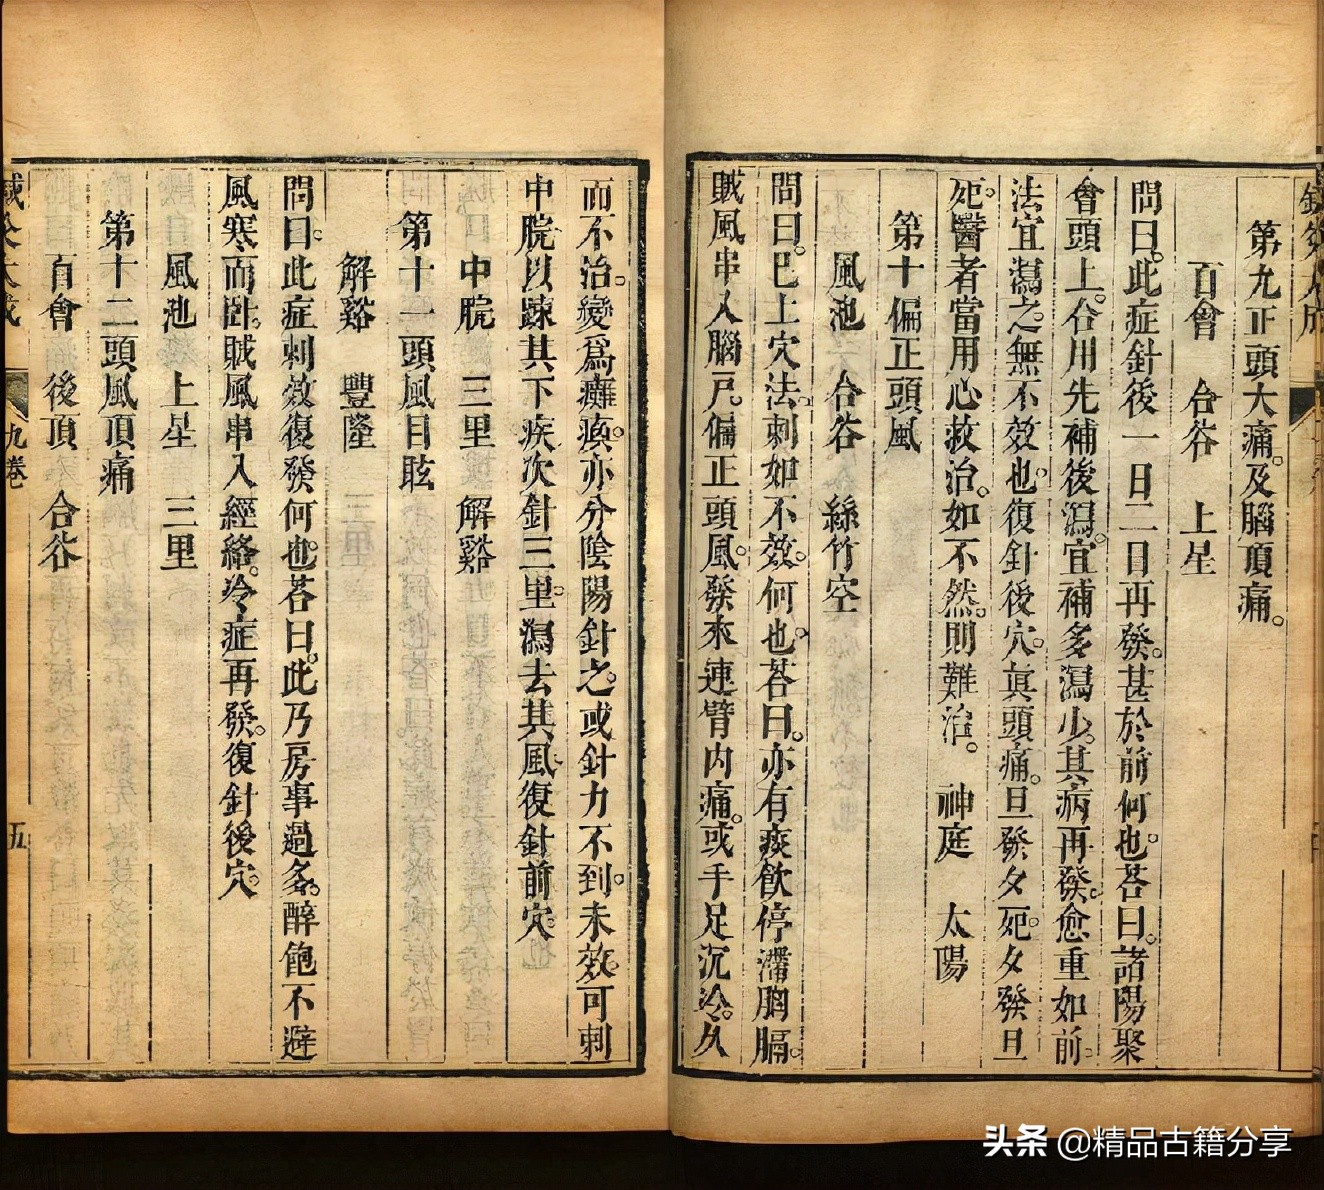 第九正頭大痛。及腦頂痛。
百會　合谷　上星
問曰。此症針後一日二日再發。甚於前何也。荅曰。諸陽聚
會頭上。合用先補後瀉。宜補多瀉少。其病再發。愈重如前。
法宜瀉之。無不效也。復針後穴。眞頭痛。旦發夕死。夕發旦
死。醫者當用心救治。如不然。則難治。　神庭　太陽
第十偏正頭風
風池　合谷　絲竹空
問曰。巳上穴法。刺如不效。何也。荅曰。亦有痰飲停滯胸膈。
賊風串入腦戸。偏正頭風。發來連臂内痛。或手足沉冷。久
而不治。變爲癱瘓。亦分陰陽針之。或針力不到。未效。可刺
中脘。以踈其下疾。次針三里。瀉去其風。復針前穴。
中脘　三里　解谿
第十一頭風目眩
解谿　豐隆
問曰。此症刺效復發何也。荅曰。此乃房事過多。醉飽不避
風寒而臥。賊風串入經絡。冷症再發。復針後穴。
風池　上星　三里
第十二頭風頂痛
百會　後頂　合谷
九卷
五
头条 @精品古籍分享